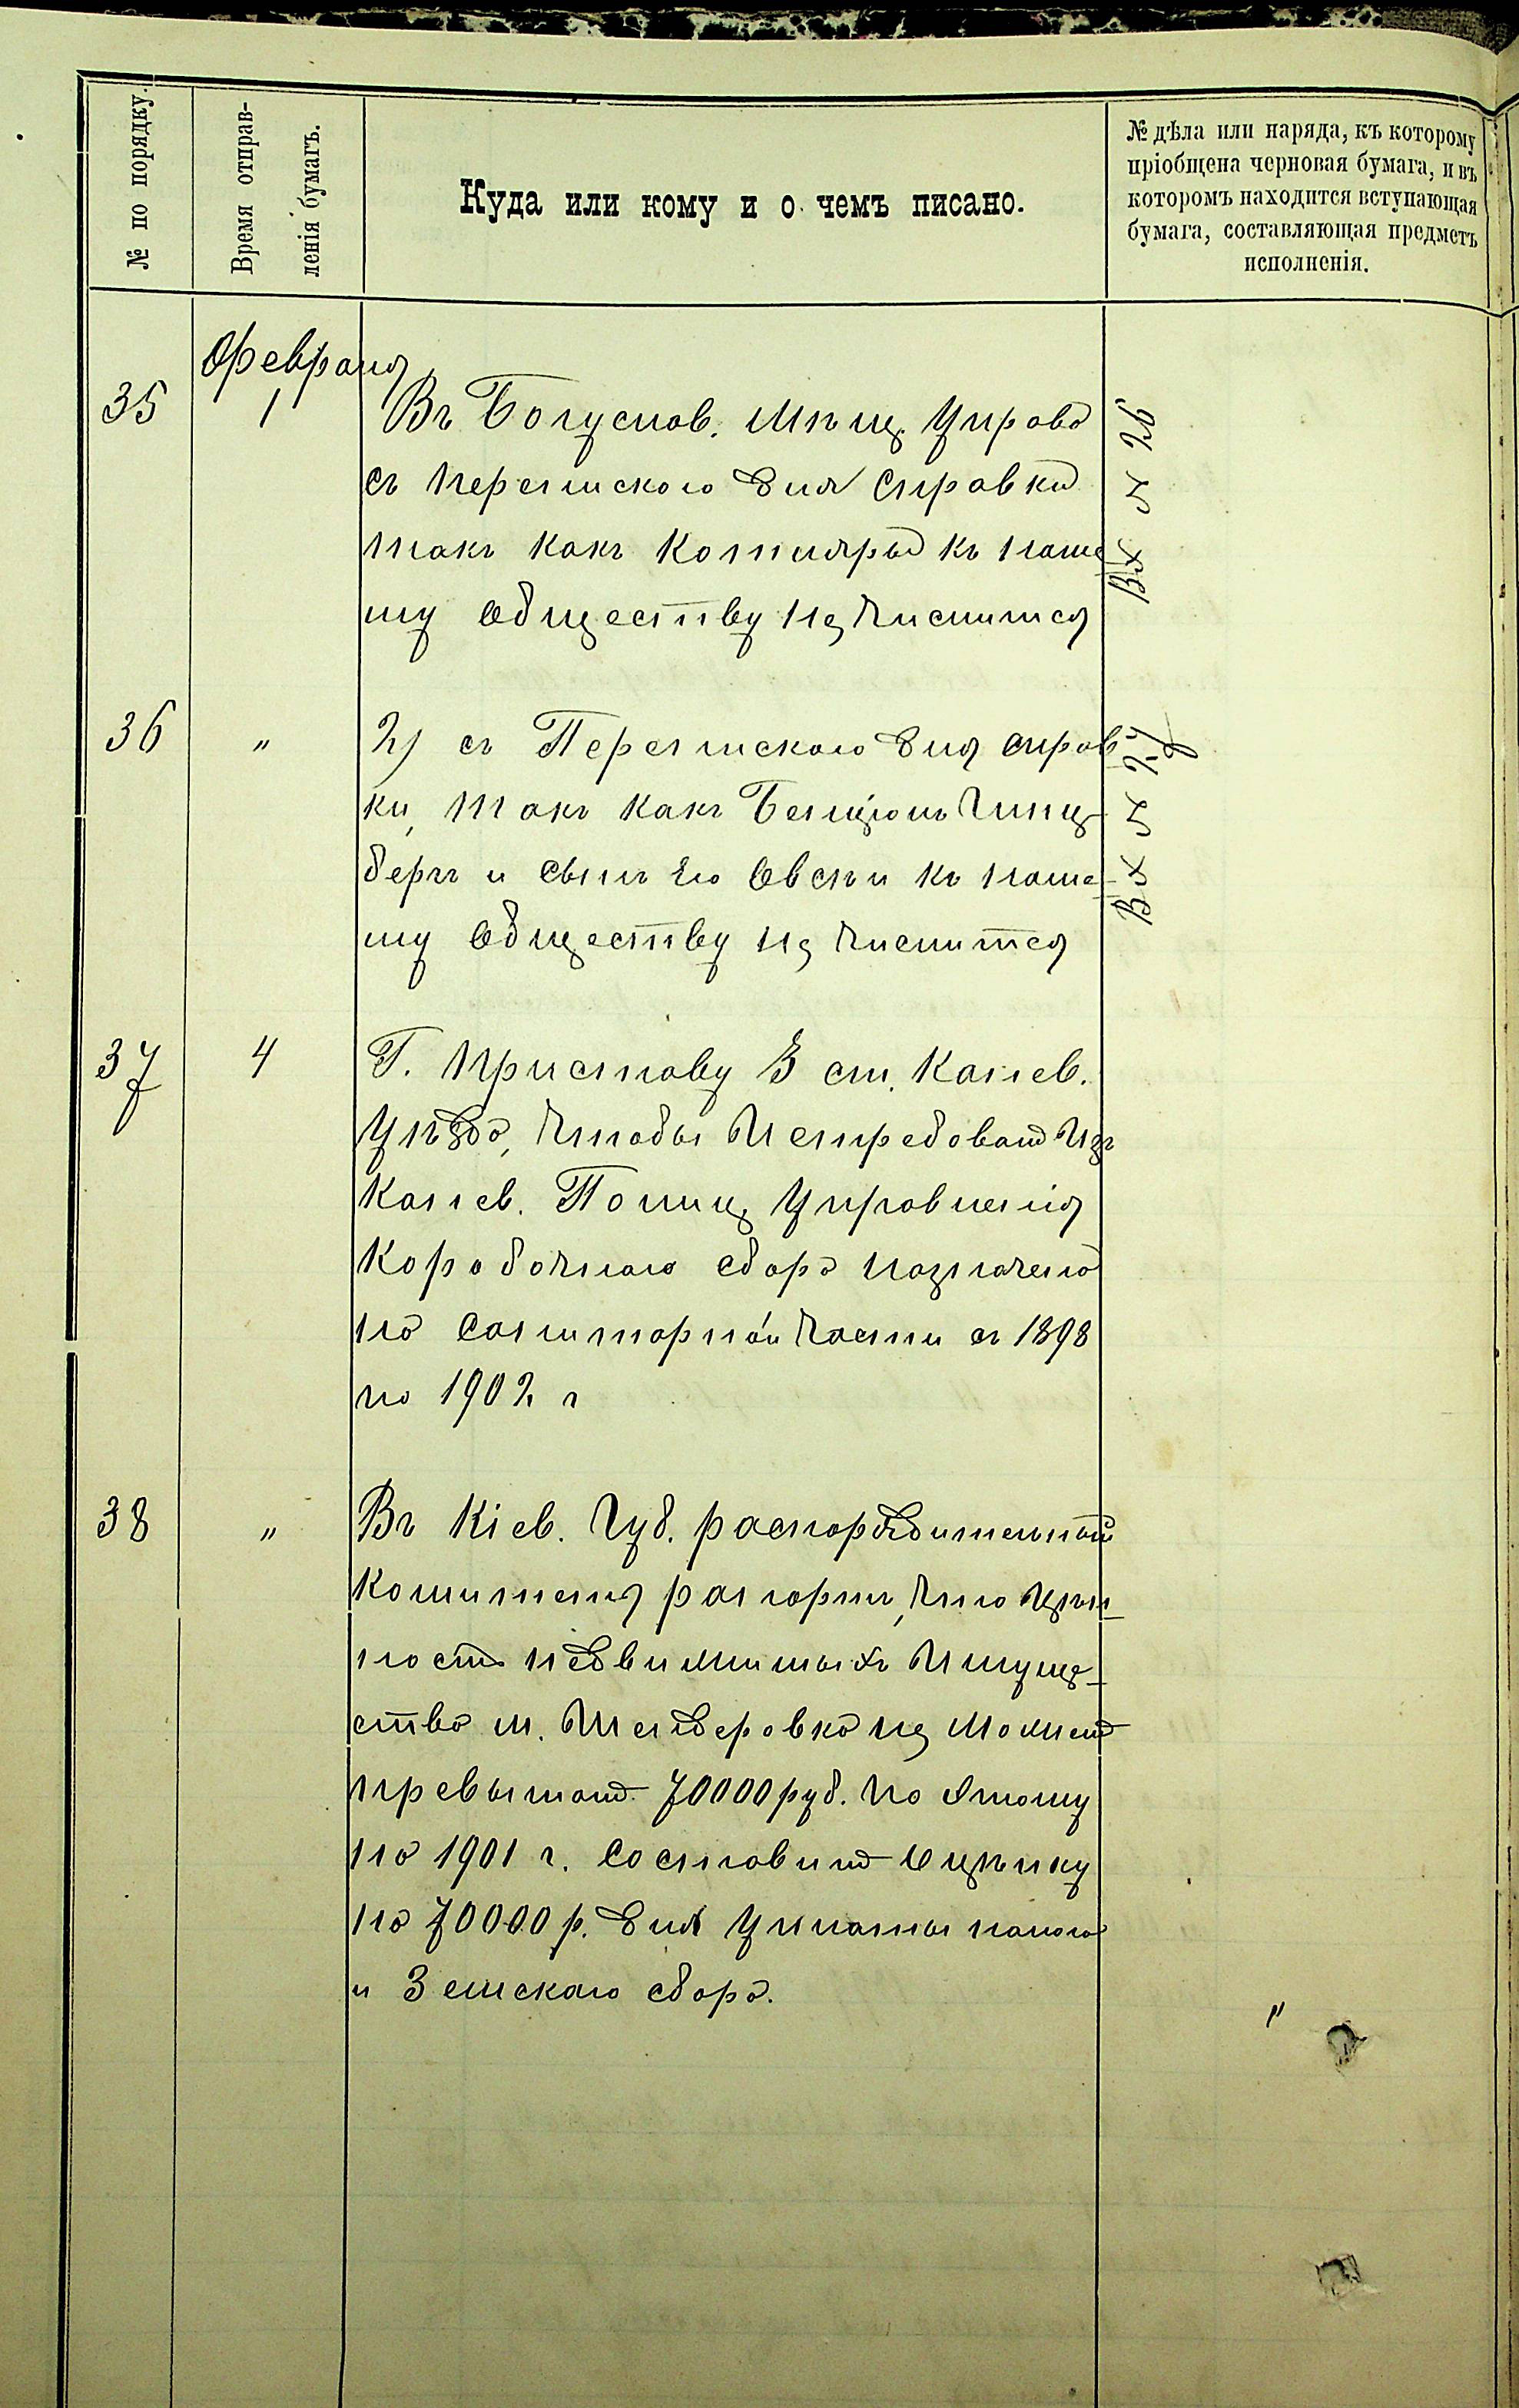 № по порядку.
Время отправ-
ленія бумагъ.
Куда или кому и о чемъ писано.
№ дѣла или наряда, къ которому
пріобщена черновая бумага, и въ
которомъ находится вступающая
бумага, составляющая предметъ
исполненія.
Февраля
35
1
Въ Богуслов. Мѣщ. Управо
съ перепискою для справки
такъ какъ Котляры къ наше
му Обществу не числится
Вх № 26
36
"
2) съ Перепискою для справ
ки, такъ какъ Бенціонъ Гинц
бергъ и сынъ Его Овсѣи къ наше
му Обществу не числится
Вх № 27
37
4
Г. Приставу 3 ст. Канев.
Уѣзда, чтобы Истребовать Изъ
Канев. Полиц. Управленія
Коробочнаго сбора назначено
на Санитарной части съ 1898
по 1902 г
38
"
Въ Кіев. Губ. распорядительный
Комитетъ рапортъ, что Цѣн
ность недвижимыхъ Имуще-
ство м. Шендеровка не можетъ
превышать 70000 руб. по этому
на 1901 г. составить Оцѣнку
на 70000 р. для уплаты налога
и Земскаго сбора.
"